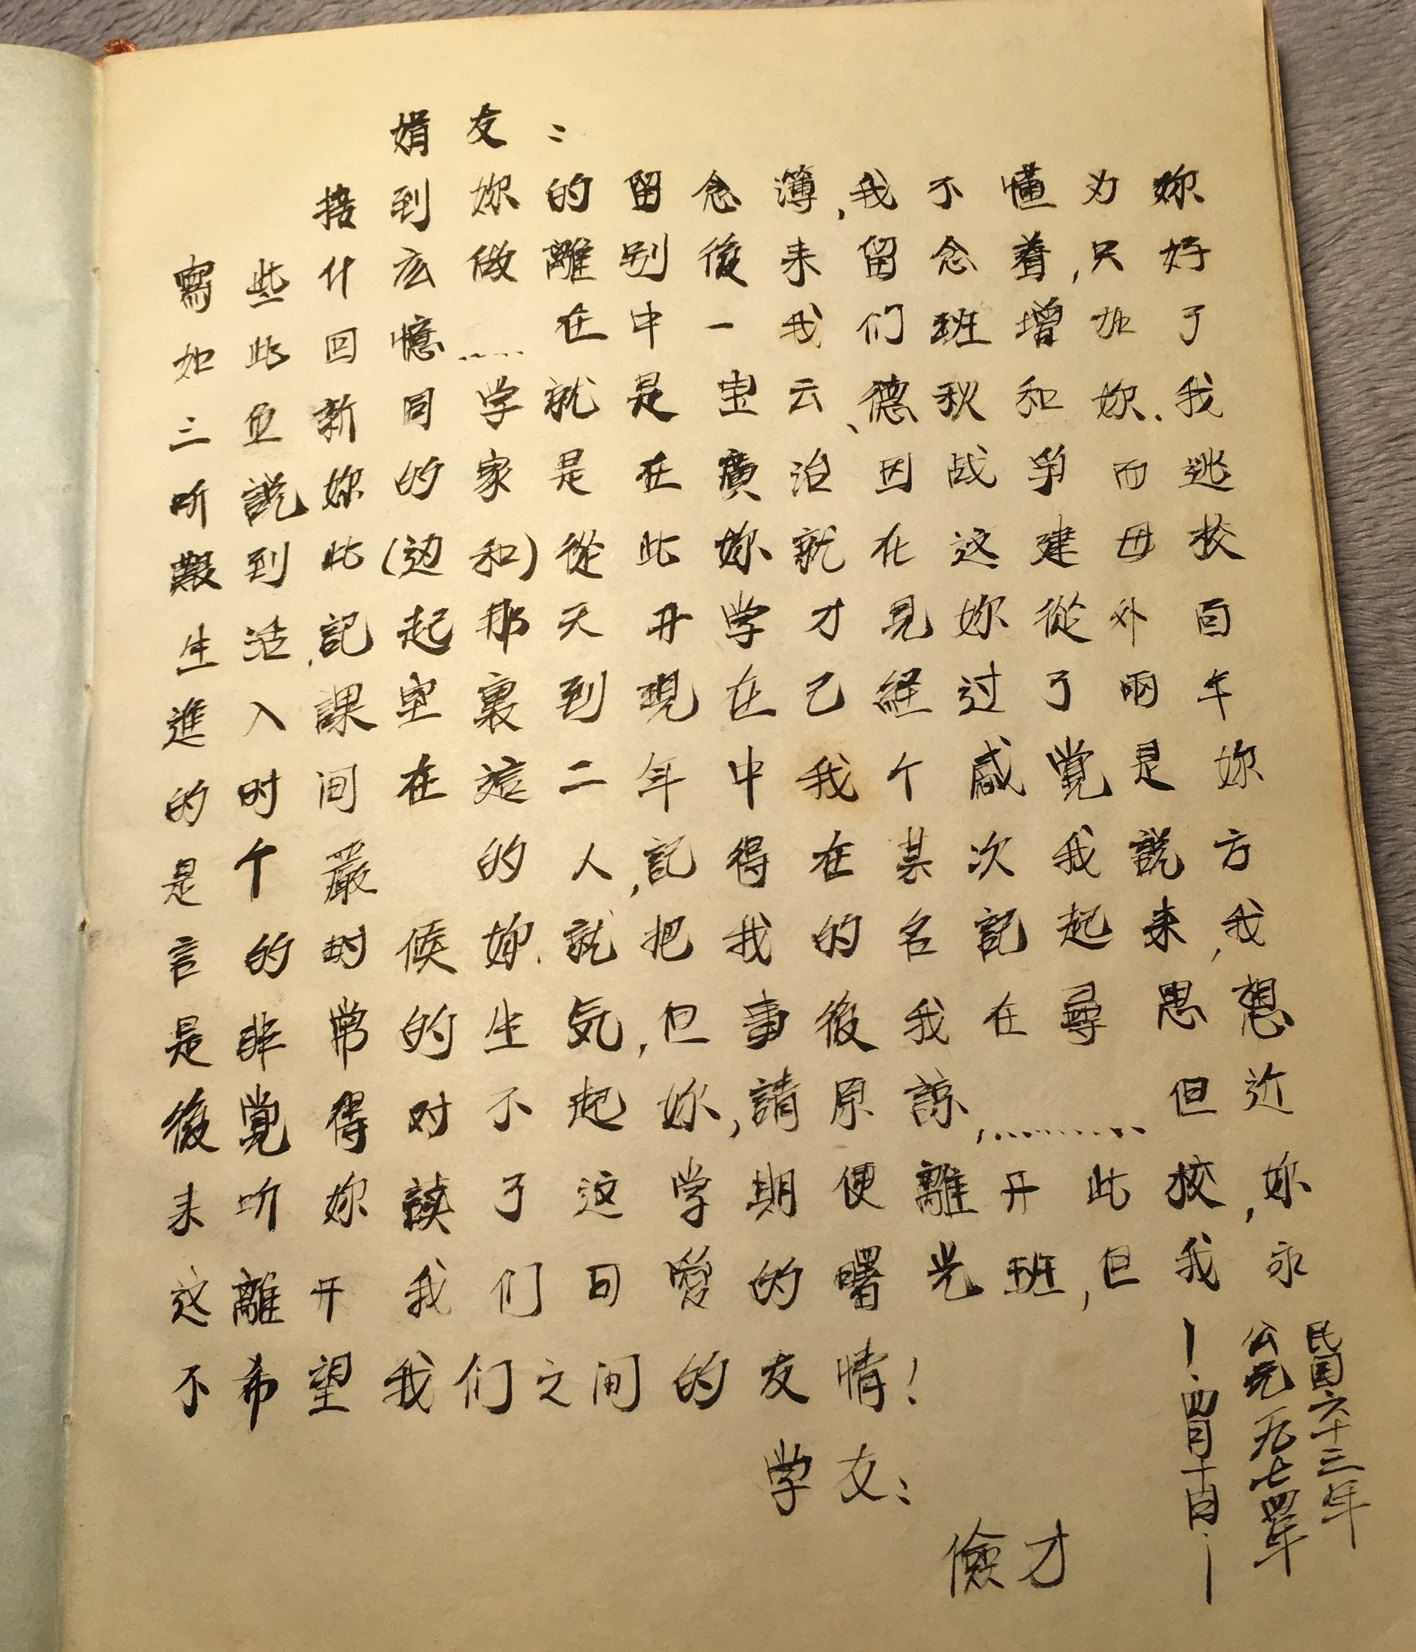 娟友：
接到妳的留念簿,我不懂为妳
寫些什広做離别後来留念着,只好
如此回憶……在中一我们班增加了
三位新同学就是宝云、德秋和妳.我
听説妳的家是在廣治、因战争而逃
難到此(边和)從此妳就在这建毋校
生活,記起那天开学才見妳從外面
進入課室裏到現在己経过了兩年
的时间在這二年中我个感覺是妳
是个嚴 的人,記得在某次我説方
言的时候妳就把我的名記起来,我
是非常的生気,但事後我在尋思想
後覺得对不起妳,請原諒,………但近
来听妳讀了这学期便離开此校,妳
这離开我们可愛的曙光班,但我永
不希望我们之间的友情！
学友：
儉才
民国六十三年
公元一九七四年
—.四月十日.—